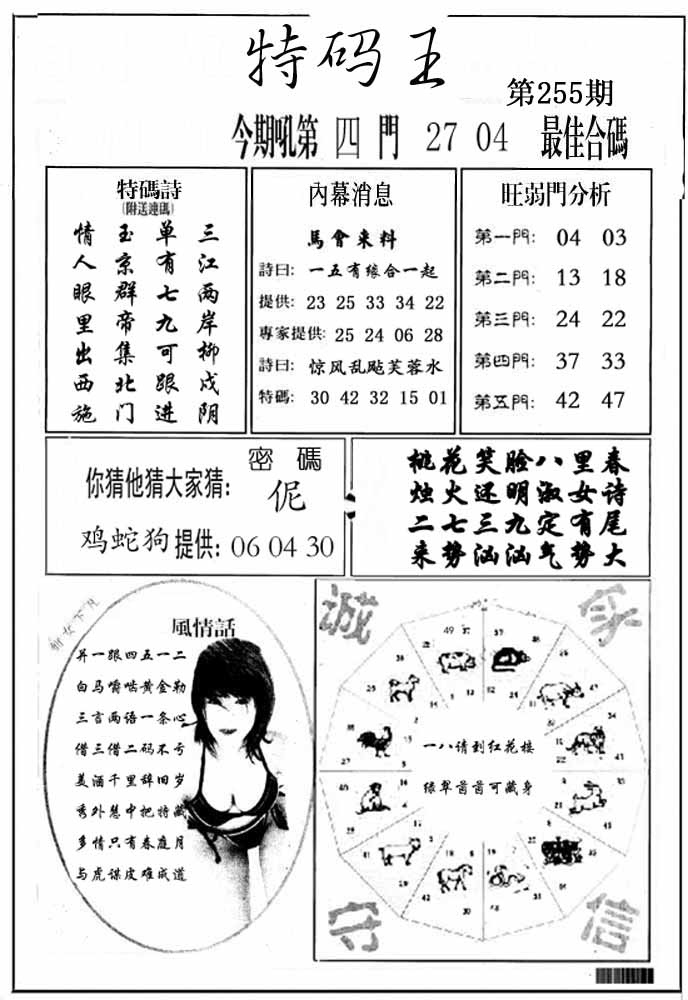 特码王
第255期
今期吼第 四 門 27 04 最佳合碼
特碼詩
(附送連碼)
三江两岸柳成阴
单有七九可跟进
玉京群帝集北门
情人眼里出西施
內幕消息
馬會来料
詩曰: 一五有缘合一起
提供: 23 25 33 34 22
專家提供: 25 24 06 28
詩曰: 惊风乱飐芙蓉水
特碼: 30 42 32 15 01
旺弱門分析
第一門: 04 03
第二門: 13 18
第三門: 24 22
第四門: 37 33
第五門: 42 47
密 碼
你猜他猜大家猜: 伲
鸡蛇狗 提供: 06 04 30
桃花笑脸八里春
烛火还明淑女诗
二七三九定有尾
来势汹汹气势大
風情話
并一跟四五一二
白马嚼啮黄金勒
三言两语一条心
借三借二码不亏
美酒千里辞旧岁
秀外慧中把特藏
多情只有春庭月
与虎谋皮难成道
诚
守
信
一八请到红花楼
绿翠茵茵可藏身